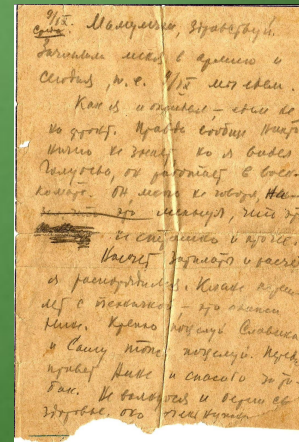 9/IX. Мамумчик, здравствуй.
Среда
Зачислили меня в армию и
сегодня, т.е. 9/IX мы едем.
Как я и ожидал, – едем не
на фронт. Правда вообще никто
ничего не знает, но я видел
он работает в воен-
комате. Он, мне не говоря,
что
не спешно и прочее.
Насчет зарплаты и расчета
я распорядился. Клавке
лет с
Крепко поцелуй Славика
и Сашу тоже поцелуй. Передай
привет Анне и спасибо за та-
бак. Не волнуйся и береги свое
здоровье, оно очень нужно